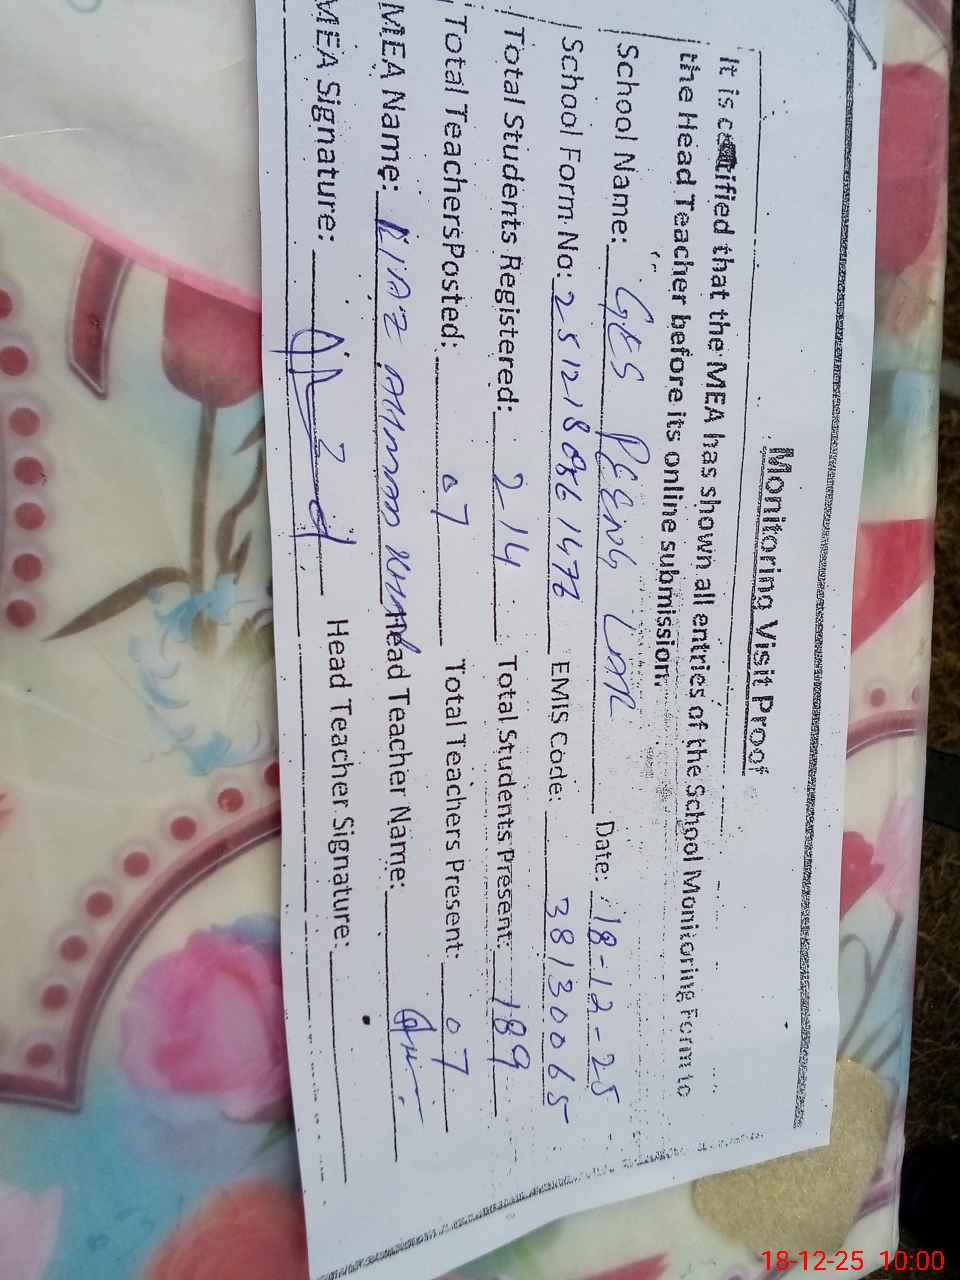 Monitoring Visit Proof
It is certified that the MEA has shown all entries of the School Monitoring Form to
the Head Teacher before its online submission.
School Name: GES PEENG LAR Date: 18-12-25
School Form No: 2512180861476 EMIS Code: 38130065
Total Students Registered: 214 Total Students Present: 189
Total Teachers Posted: 07 Total Teachers Present: 07
MEA Name: RIAZ AHMAD Head Teacher Name:
MEA Signature: Head Teacher Signature:
18-12-25 10:00